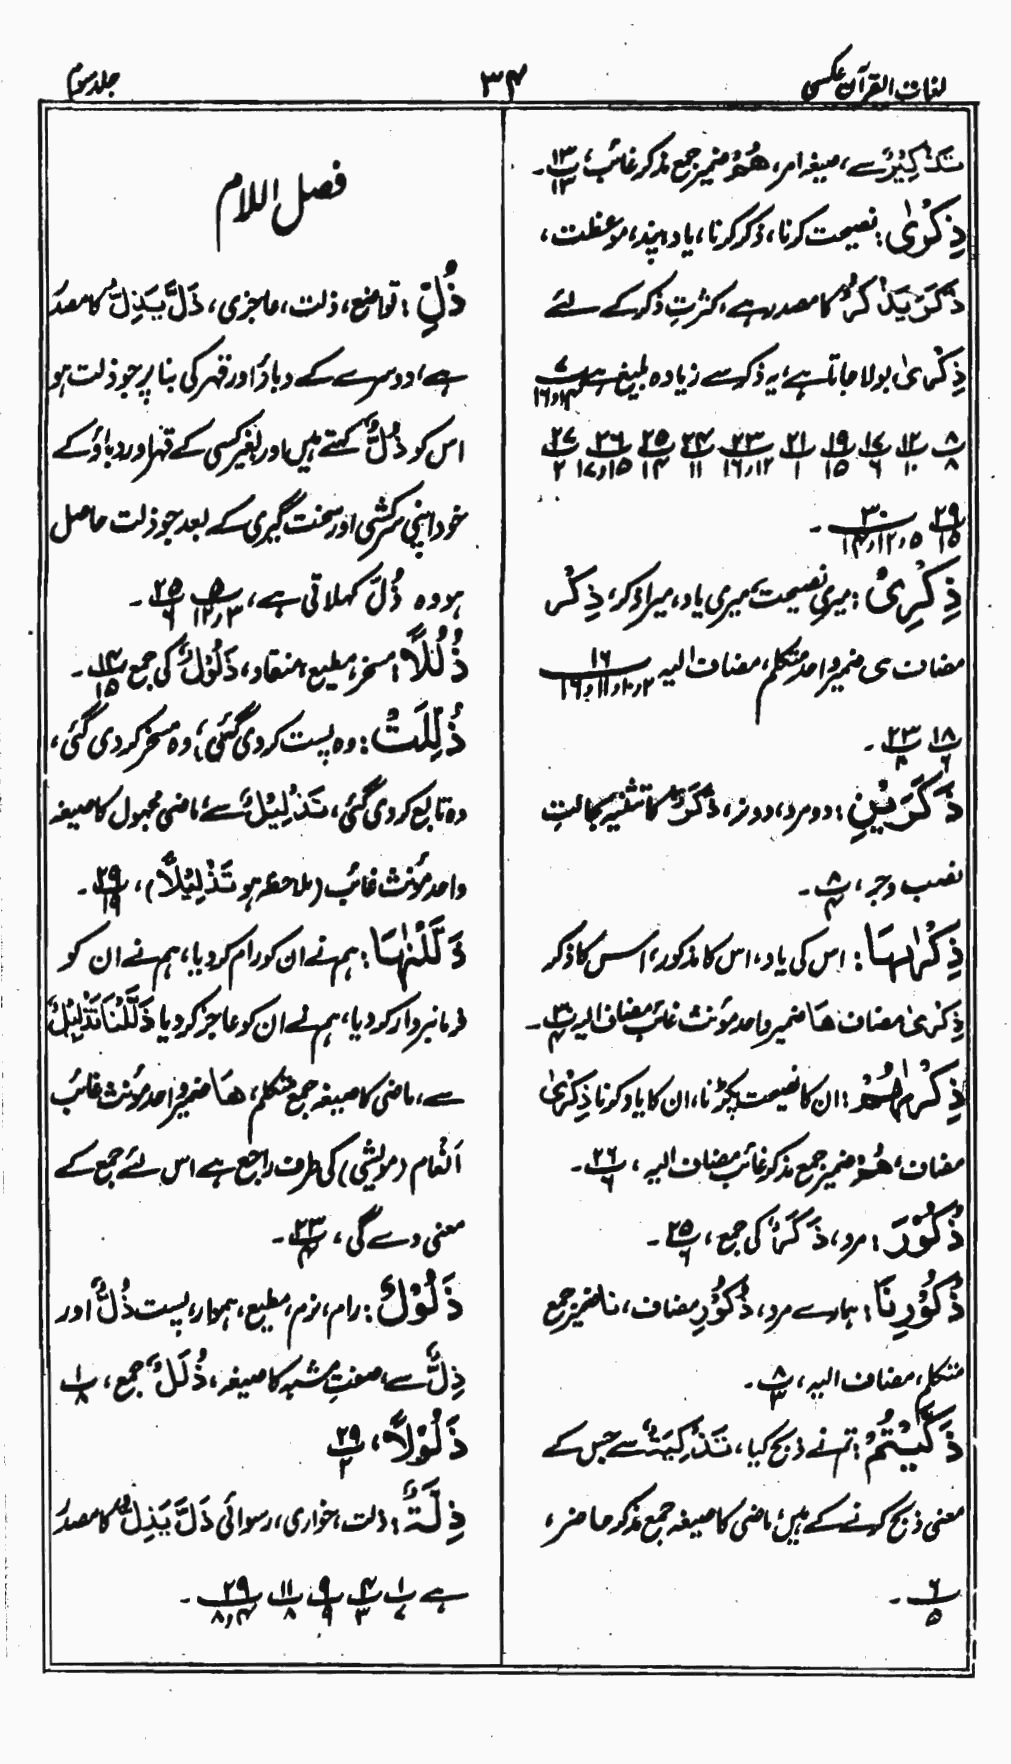 لغات القرآن عکسی
۳۴
جلد سوم
تَذْکِیْرٌ سے، صیغہ امر، ھُمْ ضمیر جمع مذکر غائب، ۱۳/۱۳۔
ذِکْرٰی: نصیحت کرنا، ذکر کرنا، یاد، پند، موعظت،
ذَکَرَ یَذْکُرُ کا مصدر ہے، کثرتِ ذکر کے لئے
ذِکْرٰی بولا جاتا ہے، یہ ذکر سے زیادہ بلیغ ہے ۷/۱۴و۱۶
۸/۸ ۱۲/۱۰ ۱۷/۶ ۱۹/۱۵ ۲۱/۱ ۲۳/۱۲و۱۶ ۲۴/۱۱ ۲۵/۱۴ ۲۶/۱۵و۱۷ ۲۷/۲
۲۹/۱۵ ۳۰/۵و۱۲و۱۴۔
ذِکْرِیْ: میری نصیحت، میری یاد، میرا ذکر، ذِکْر
مضاف ی ضمیر واحد متکلم، مضاف الیہ ۱۶/۲و۱۰و۱۱و۱۶
۱۸/۶ ۲۳/۸۔
ذَکَرَیْنِ: دو مرد، دو نر، ذَکَرٌ کا تثنیہ بحالتِ
نصب و جر، ۸/۴۔
ذِکْرٰىهَا: اس کی یاد، اس کا مذکور، اس کا ذکر
ذِکْرٰی مضاف ھَا ضمیر واحد مؤنث غائب مضاف الیہ ۳۰/۴۔
ذِکْرٰىهُمْ: ان کا نصیحت پکڑنا، ان کا یاد کرنا ذِکْرٰی
مضاف، ھُمْ ضمیر جمع مذکر غائب مضاف الیہ، ۲۶/۶۔
ذُکُوْرَ: مرد، ذَکَرٌ کی جمع، ۲۵/۶۔
ذُکُوْرِنَا: ہمارے مرد، ذُکُوْرِ مضاف، نا ضمیر جمع
متکلم، مضاف الیہ، ۸/۳۔
ذَکَّیْتُمْ: تم نے ذبح کیا، تَذْکِیَةٌ سے جس کے
معنی ذبح کرنے کے ہیں، ماضی کا صیغہ جمع مذکر حاضر،
۶/۵۔
فصل اللام
ذُلِّ: تواضع، ذلت، عاجزی، ذَلَّ یَذِلُّ کا مصدر
ہے، دوسرے کے دباؤ اور قہر کی بنا پر جو ذلت ہو
اس کو ذُلٌّ کہتے ہیں اور بغیر کسی کے قہر اور دباؤ کے
خود اپنی سرکشی اور سخت گیری کے بعد جو ذلت حاصل
ہو وہ ذُلّ کہلاتی ہے، ۵/۳و۱۲ ۲۵/۶۔
ذُلُلًا: مسخر، مطیع، منقاد، ذَلُوْلٌ کی جمع ۱۴/۱۵۔
ذُلِّلَتْ: وہ پست کر دی گئی، وہ مسخر کر دی گئی،
وہ تابع کر دی گئی، تَذْلِیْلٌ سے، ماضی مجہول کا صیغہ
واحد مؤنث غائب (ملاحظہ ہو تَذْلِیْلًا)، ۲۹/۱۹۔
ذَلَّلْنٰهَا: ہم نے ان کو رام کر دیا، ہم نے ان کو
فرمانبردار کر دیا، ہم نے ان کو عاجز کر دیا ذَلَّلْنَا تَذْلِیْلٌ
سے، ماضی کا صیغہ جمع متکلم، ھَا ضمیر واحد مؤنث غائب
اَنْعَام (مویشی) کی طرف راجع ہے اس لئے جمع کے
معنی دے گی، ۲۳/۴۔
ذَلُوْلٌ: رام، نرم، مطیع، ہموار، پست ذُلٌّ اور
ذِلٌّ سے، صفتِ مشبہ کا صیغہ، ذُلُلٌ جمع، ۱/۸
ذَلُوْلًا، ۲۹/۲
ذِلَّةٌ: ذلت، خواری، رسوائی ذَلَّ یَذِلُّ کا مصدر
ہے ۱/۷ ۴/۳ ۹/۹ ۱۱/۸ ۲۹/۴و۸۔